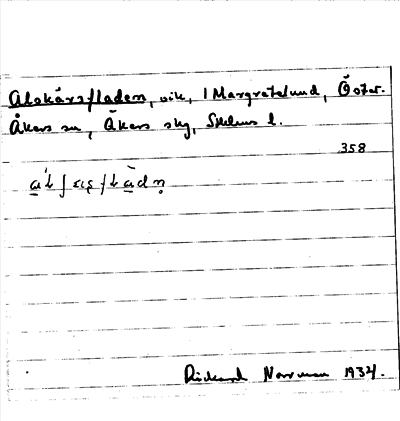 Alskärsfladen, vik, i Margretelund, Öster-
Åkers sn, Åkers skg, Sthlms l.
358
Rickard Norrman 1934.